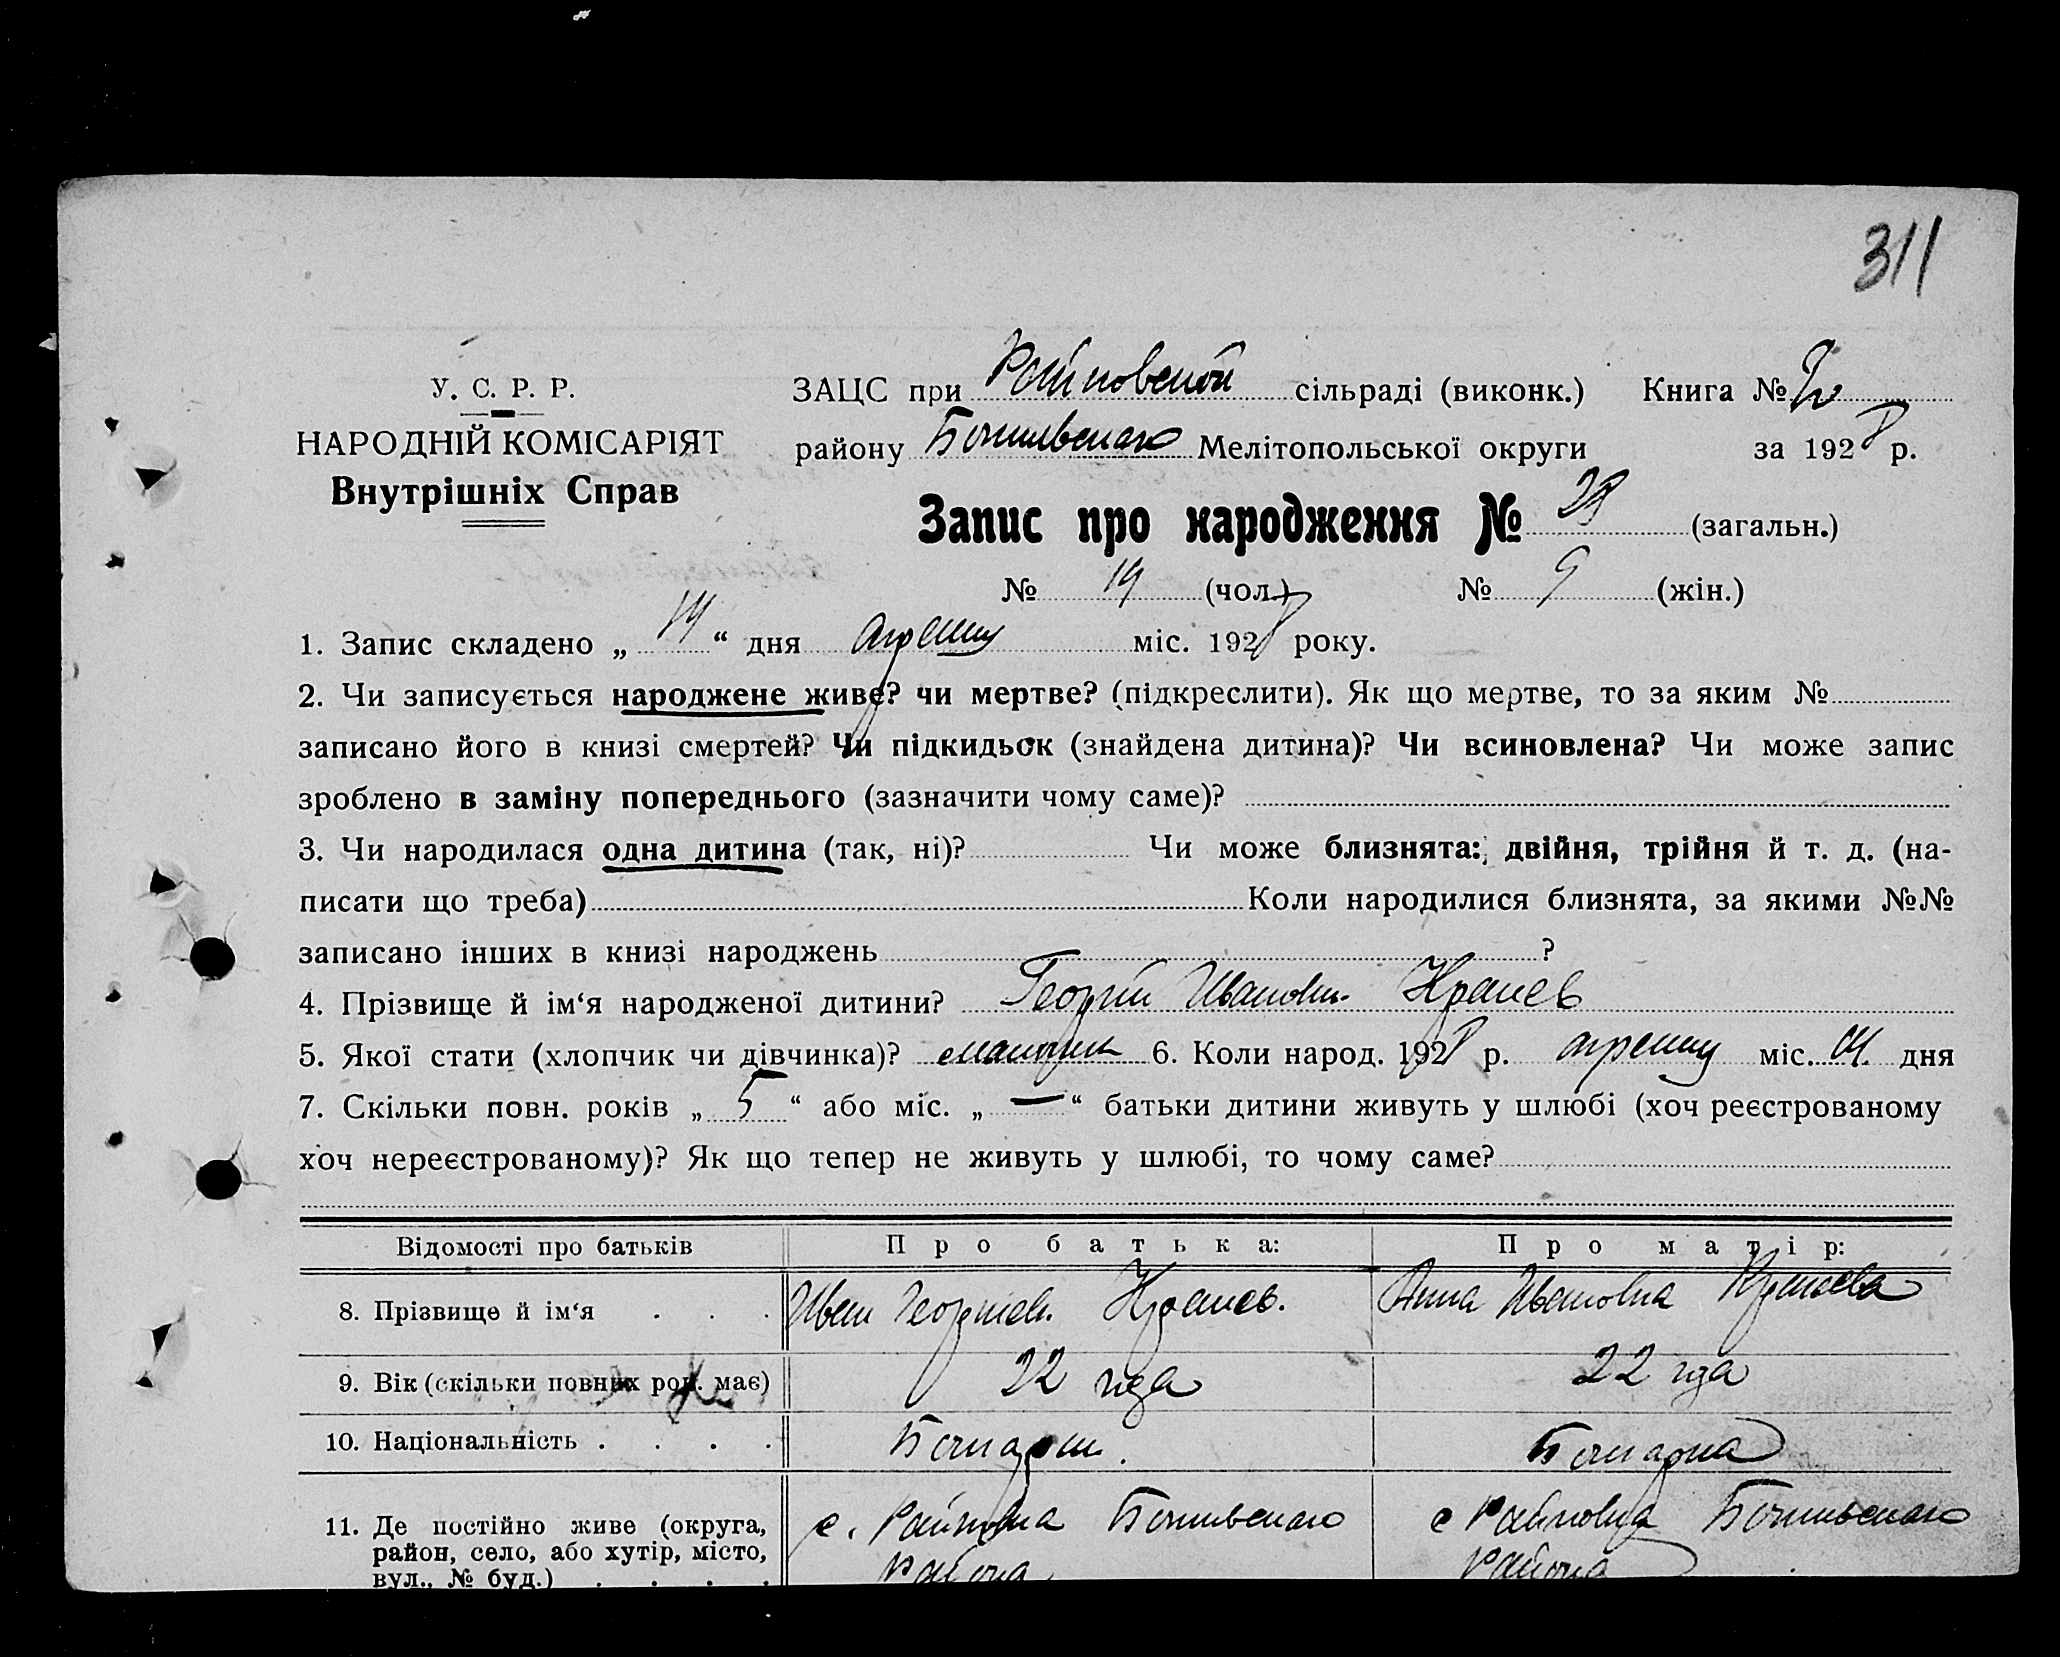 311
У. С. Р. Р.
НАРОДНІЙ КОМІСАРІЯТ
Внутрішніх Справ
ЗАЦС при Райновской сільраді (виконк.) Книга №
району Мелітопольської округи за 1928 р.
Запис про народження № 28 (загальн.)
№ 19 (чол.) № 9 (жін.)
1. Запис складено „ “ дня апреля міс. 1928 року.
2. Чи записується народжене живе? чи мертве? (підкреслити). Як що мертве, то за яким №
записано його в книзі смертей? Чи підкидьок (знайдена дитина)? Чи всиновлена? Чи може запис
зроблено в заміну попереднього (зазначити чому саме)?
3. Чи народилася одна дитина (так, ні)? Чи може близнята: двійня, трійня й т. д. (на-
писати що треба) Коли народилися близнята, за якими №№
записано інших в книзі народжень ?
4. Прізвище й ім‘я народженої дитини? Георгій Иванов. Кралев
5. Якої стати (хлопчик чи дівчинка)? мальчик 6. Коли народ. 1928 р. апреля міс. дня
7. Скільки повн. років „ 5 “ або міс. „ — “ батьки дитини живуть у шлюбі (хоч реєстрованому
хоч нереєстрованому)? Як що тепер не живуть у шлюбі, то чому саме?
Відомості про батьків Про батька: Про матір:
8. Прізвище й ім‘я . . . Иван Георгиев. Кралев. Анна Ивановна Кралева
9. Вік (скільки повних рок. має) 22 года 22 года
10. Національність . . . . Болгарин. Болгарка
11. Де постійно живе (округа, с. Райновка с Райновка
район, село, або хутір, місто, района района
вул., № буд.) . . . .